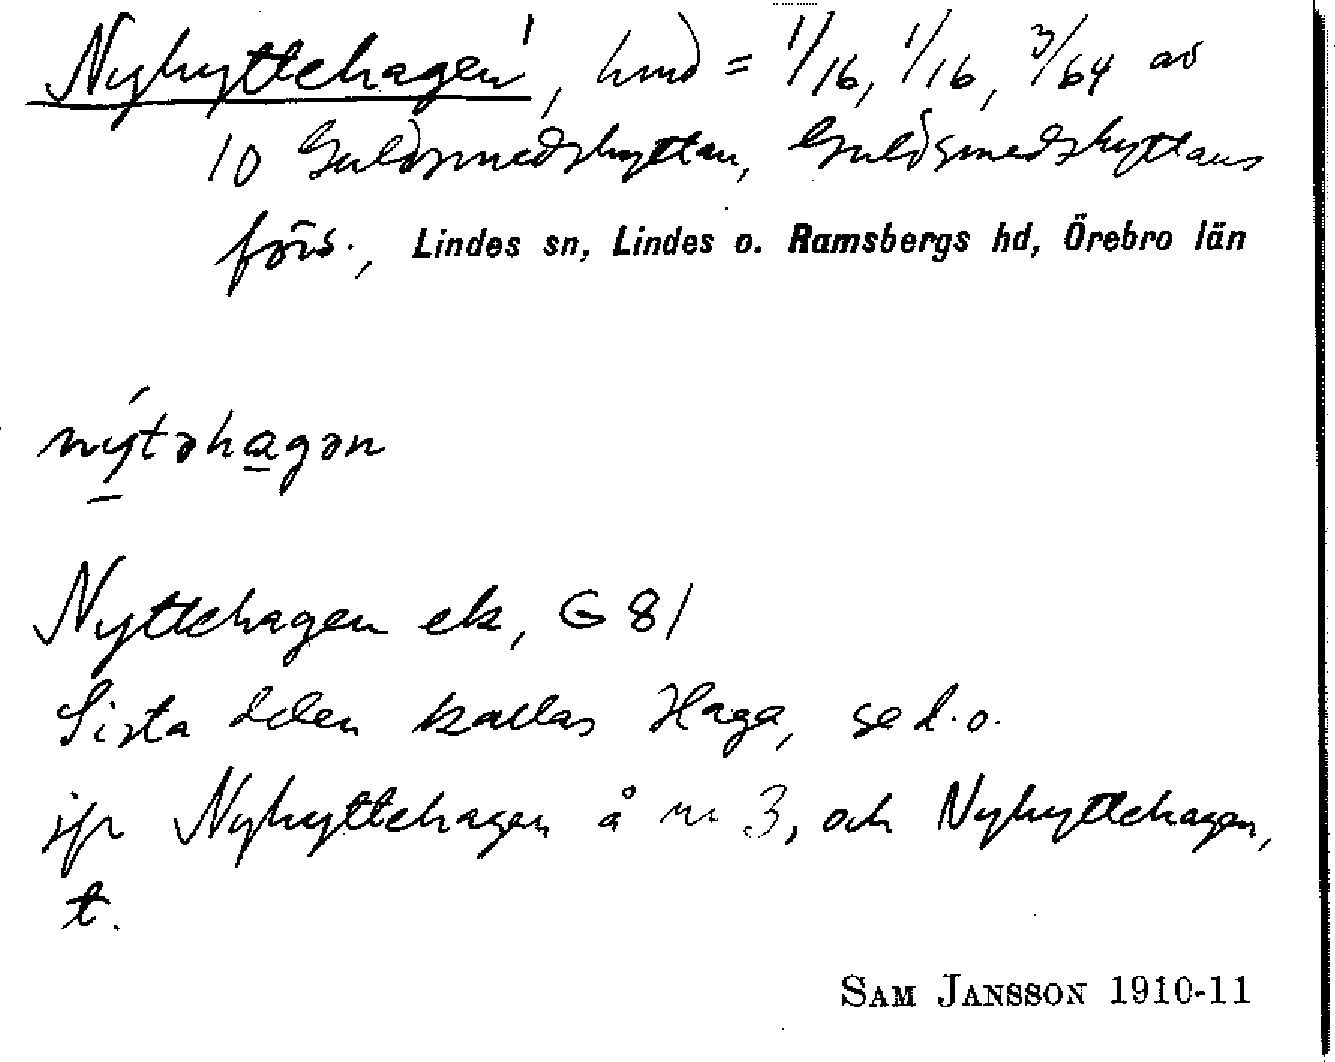 Nyhyttehagen¹, hmd = 1/16, 1/16, 3/64 av
10 Guldsmedshyttan, Guldsmedshyttans
förs., Lindes sn, Lindes o. Ramsbergs hd, Örebro län
nýtəhagən
Nyttehagen ek, G 81
Sista delen kallas Haga, se d.o.
jfr Nyhyttehagen å nr 3, och Nyhyttehagen,
t.
SAM JANSSON 1910-11